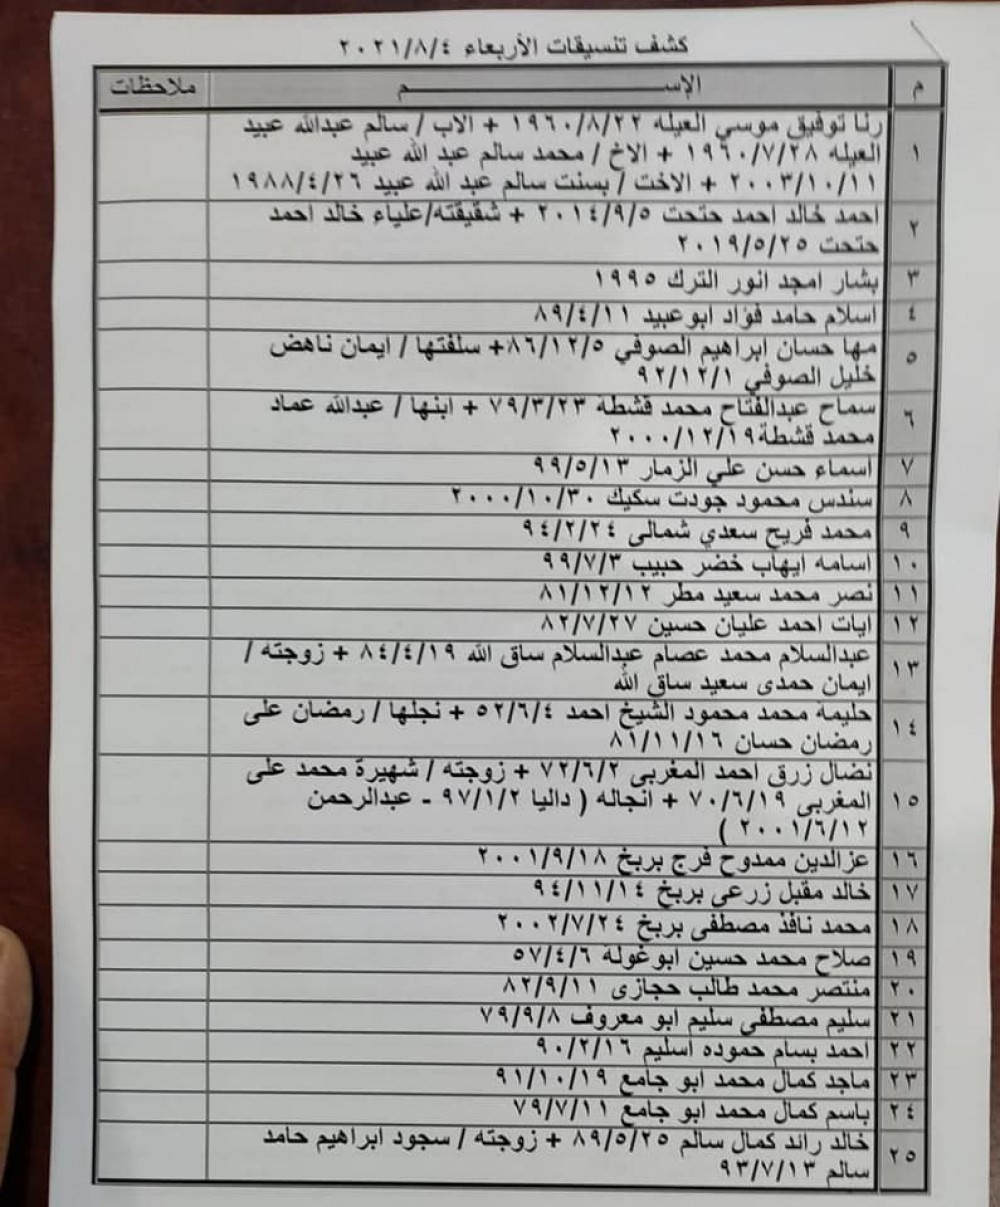 كشف تنسيقات الأربعاء ٢٠٢١/٨/٤
م الإســــــــــم ملاحظات
١ رنا توفيق موسي العيله ١٩٦٠/٨/٢٢ + الاب / سالم عبدالله عبيد
العيله ١٩٦٠/٧/٢٨ + الاخ / محمد سالم عبد الله عبيد
٢٠٠٣/١٠/١١ + الاخت / بسنت سالم عبد الله عبيد ١٩٨٨/٤/٢٦
٢ احمد خالد احمد حتحت ٢٠١٤/٩/٥ + شقيقته/علياء خالد احمد
حتحت ٢٠١٩/٥/٢٥
٣ بشار امجد انور الترك ١٩٩٥
٤ اسلام حامد فؤاد ابوعبيد ٨٩/٤/١١
٥ مها حسان ابراهيم الصوفي ٨٦/١٢/٥+ سلفتها / ايمان ناهض
خليل الصوفي ٩٢/١٢/١
٦ سماح عبدالفتاح محمد قشطة ٧٩/٣/٢٣ + ابنها / عبدالله عماد
محمد قشطة٢٠٠٠/١٢/١٩
٧ اسماء حسن علي الزمار ٩٩/٥/١٣
٨ سندس محمود جودت سكيك ٢٠٠٠/١٠/٣٠
٩ محمد فريح سعدي شمالى ٩٤/٢/٢٤
١٠ اسامه ايهاب خضر حبيب ٩٩/٧/٣
١١ نصر محمد سعيد مطر ٨١/١٢/١٢
١٢ ايات احمد عليان حسين ٨٢/٧/٢٧
١٣ عبدالسلام محمد عصام عبدالسلام ساق الله ٨٤/٤/١٩ + زوجته /
ايمان حمدى سعيد ساق الله
١٤ حليمة محمد محمود الشيخ احمد ٥٢/٦/٤ + نجلها / رمضان على
رمضان حسان ٨١/١١/١٦
١٥ نضال زرق احمد المغربى ٧٢/٦/٢ + زوجته / شهيرة محمد على
المغربى ٧٠/٦/١٩ + انجاله ( داليا ٩٧/١/٢ - عبدالرحمن
٢٠٠١/٦/١٢ )
١٦ عزالدين ممدوح فرج بربخ ٢٠٠١/٩/١٨
١٧ خالد مقبل زرعى بربخ ٩٤/١١/١٤
١٨ محمد نافذ مصطفى بربخ ٢٠٠٢/٧/٢٤
١٩ صلاح محمد حسين ابوغولة ٥٧/٤/٦
٢٠ منتصر محمد طالب حجازى ٨٢/٩/١١
٢١ سليم مصطفى سليم ابو معروف ٧٩/٩/٨
٢٢ احمد بسام حموده اسليم ٩٠/٢/١٦
٢٣ ماجد كمال محمد ابو جامع ٩١/١٠/١٩
٢٤ باسم كمال محمد ابو جامع ٧٩/٧/١١
٢٥ خالد رائد كمال سالم ٨٩/٥/٢٥ + زوجته / سجود ابراهيم حامد
سالم ٩٣/٧/١٣